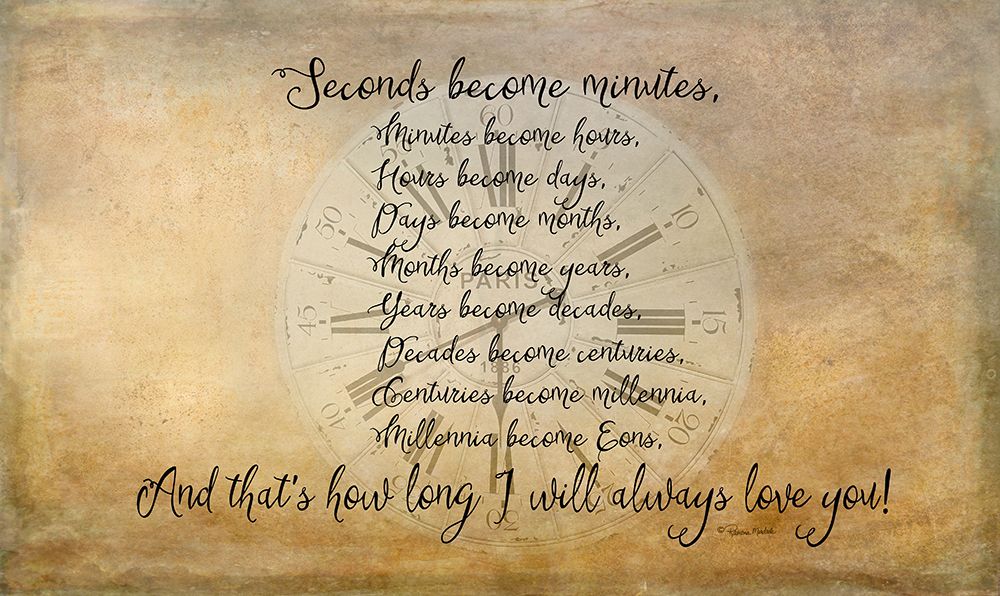 Seconds become minutes,
Minutes become hours,
Hours become days,
Days become months,
Months become years,
Years become decades,
Decades become centuries,
Centuries become millennia,
Millennia become Eons,
And that's how long I will always love you!
60
10
15
20
30
40
45
50
PARIS
1886
©